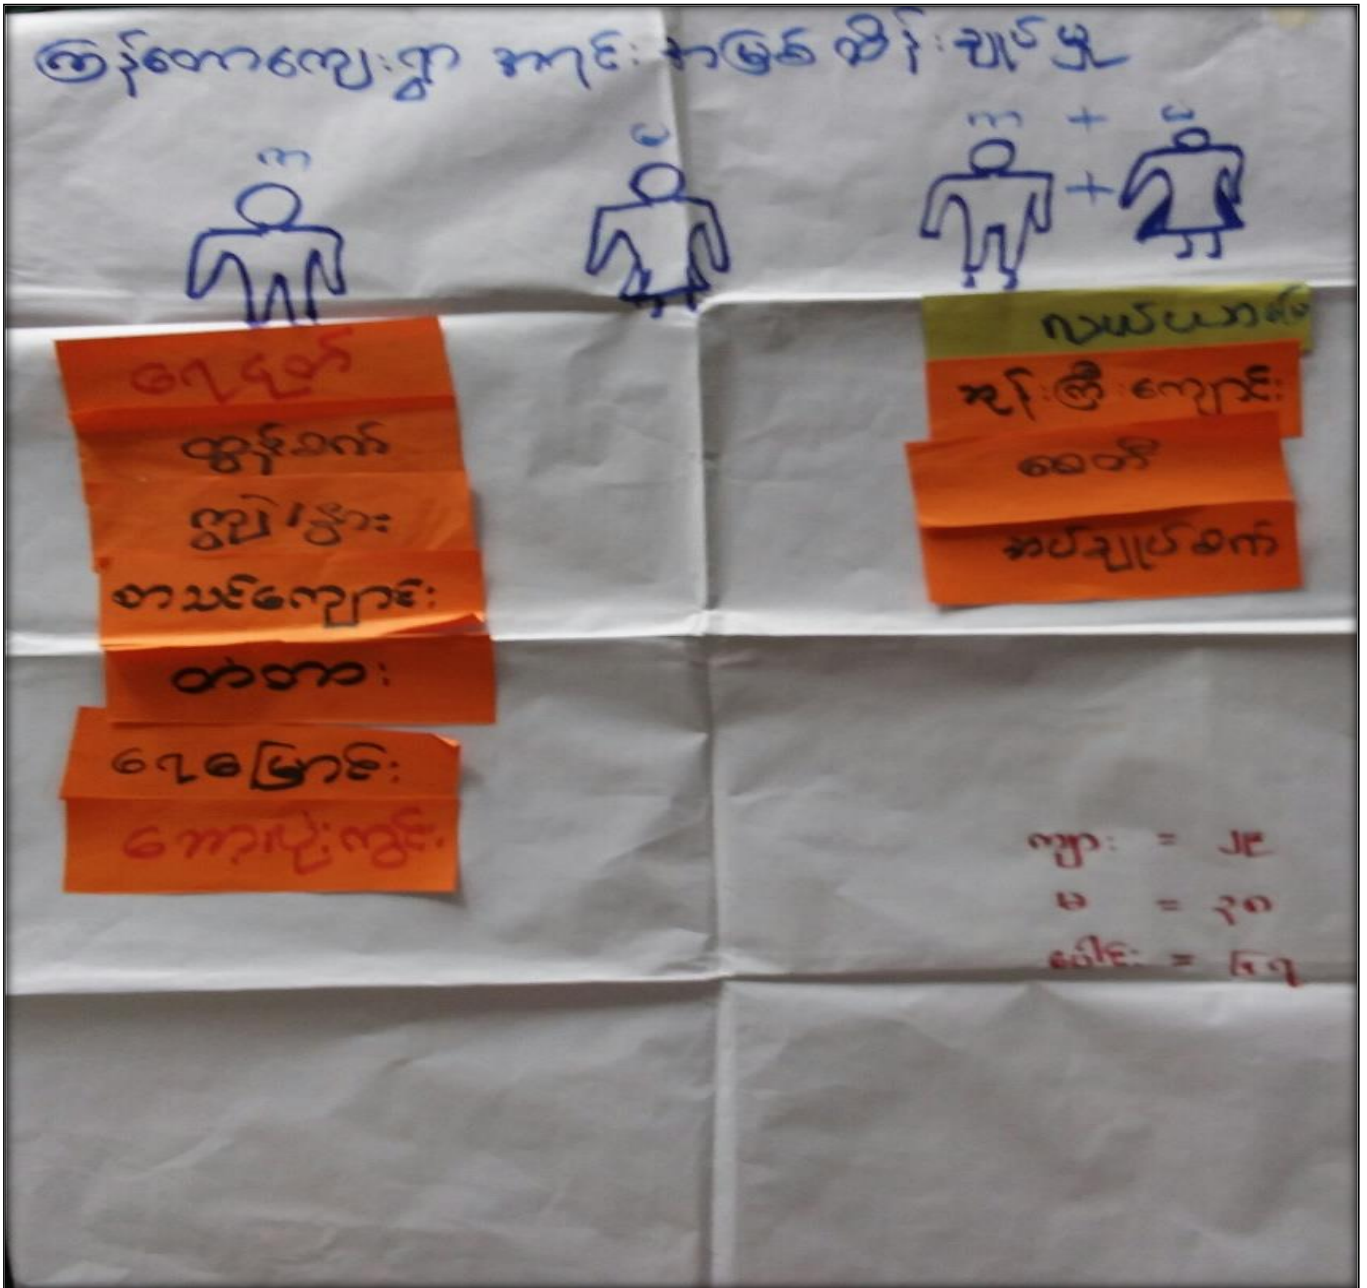 ကြန်တောကျေးရွာ အရင်းအမြစ်ထိန်းချုပ်မှု
ကာ
မ
ကာ + မ
+
ရေငုတ်
ထွန်စက်
ကျွဲ/နွား
စာသင်ကျောင်း
တံတား
ရေမြောင်း
ဘောလုံးကွင်း
လယ်ယာမြေ
ဘုန်းကြီးကျောင်း
စေတီ
အပ်ချုပ်စက်
ကျား = ၂၉
မ = ၃၈
ပေါင်း = ၆၇